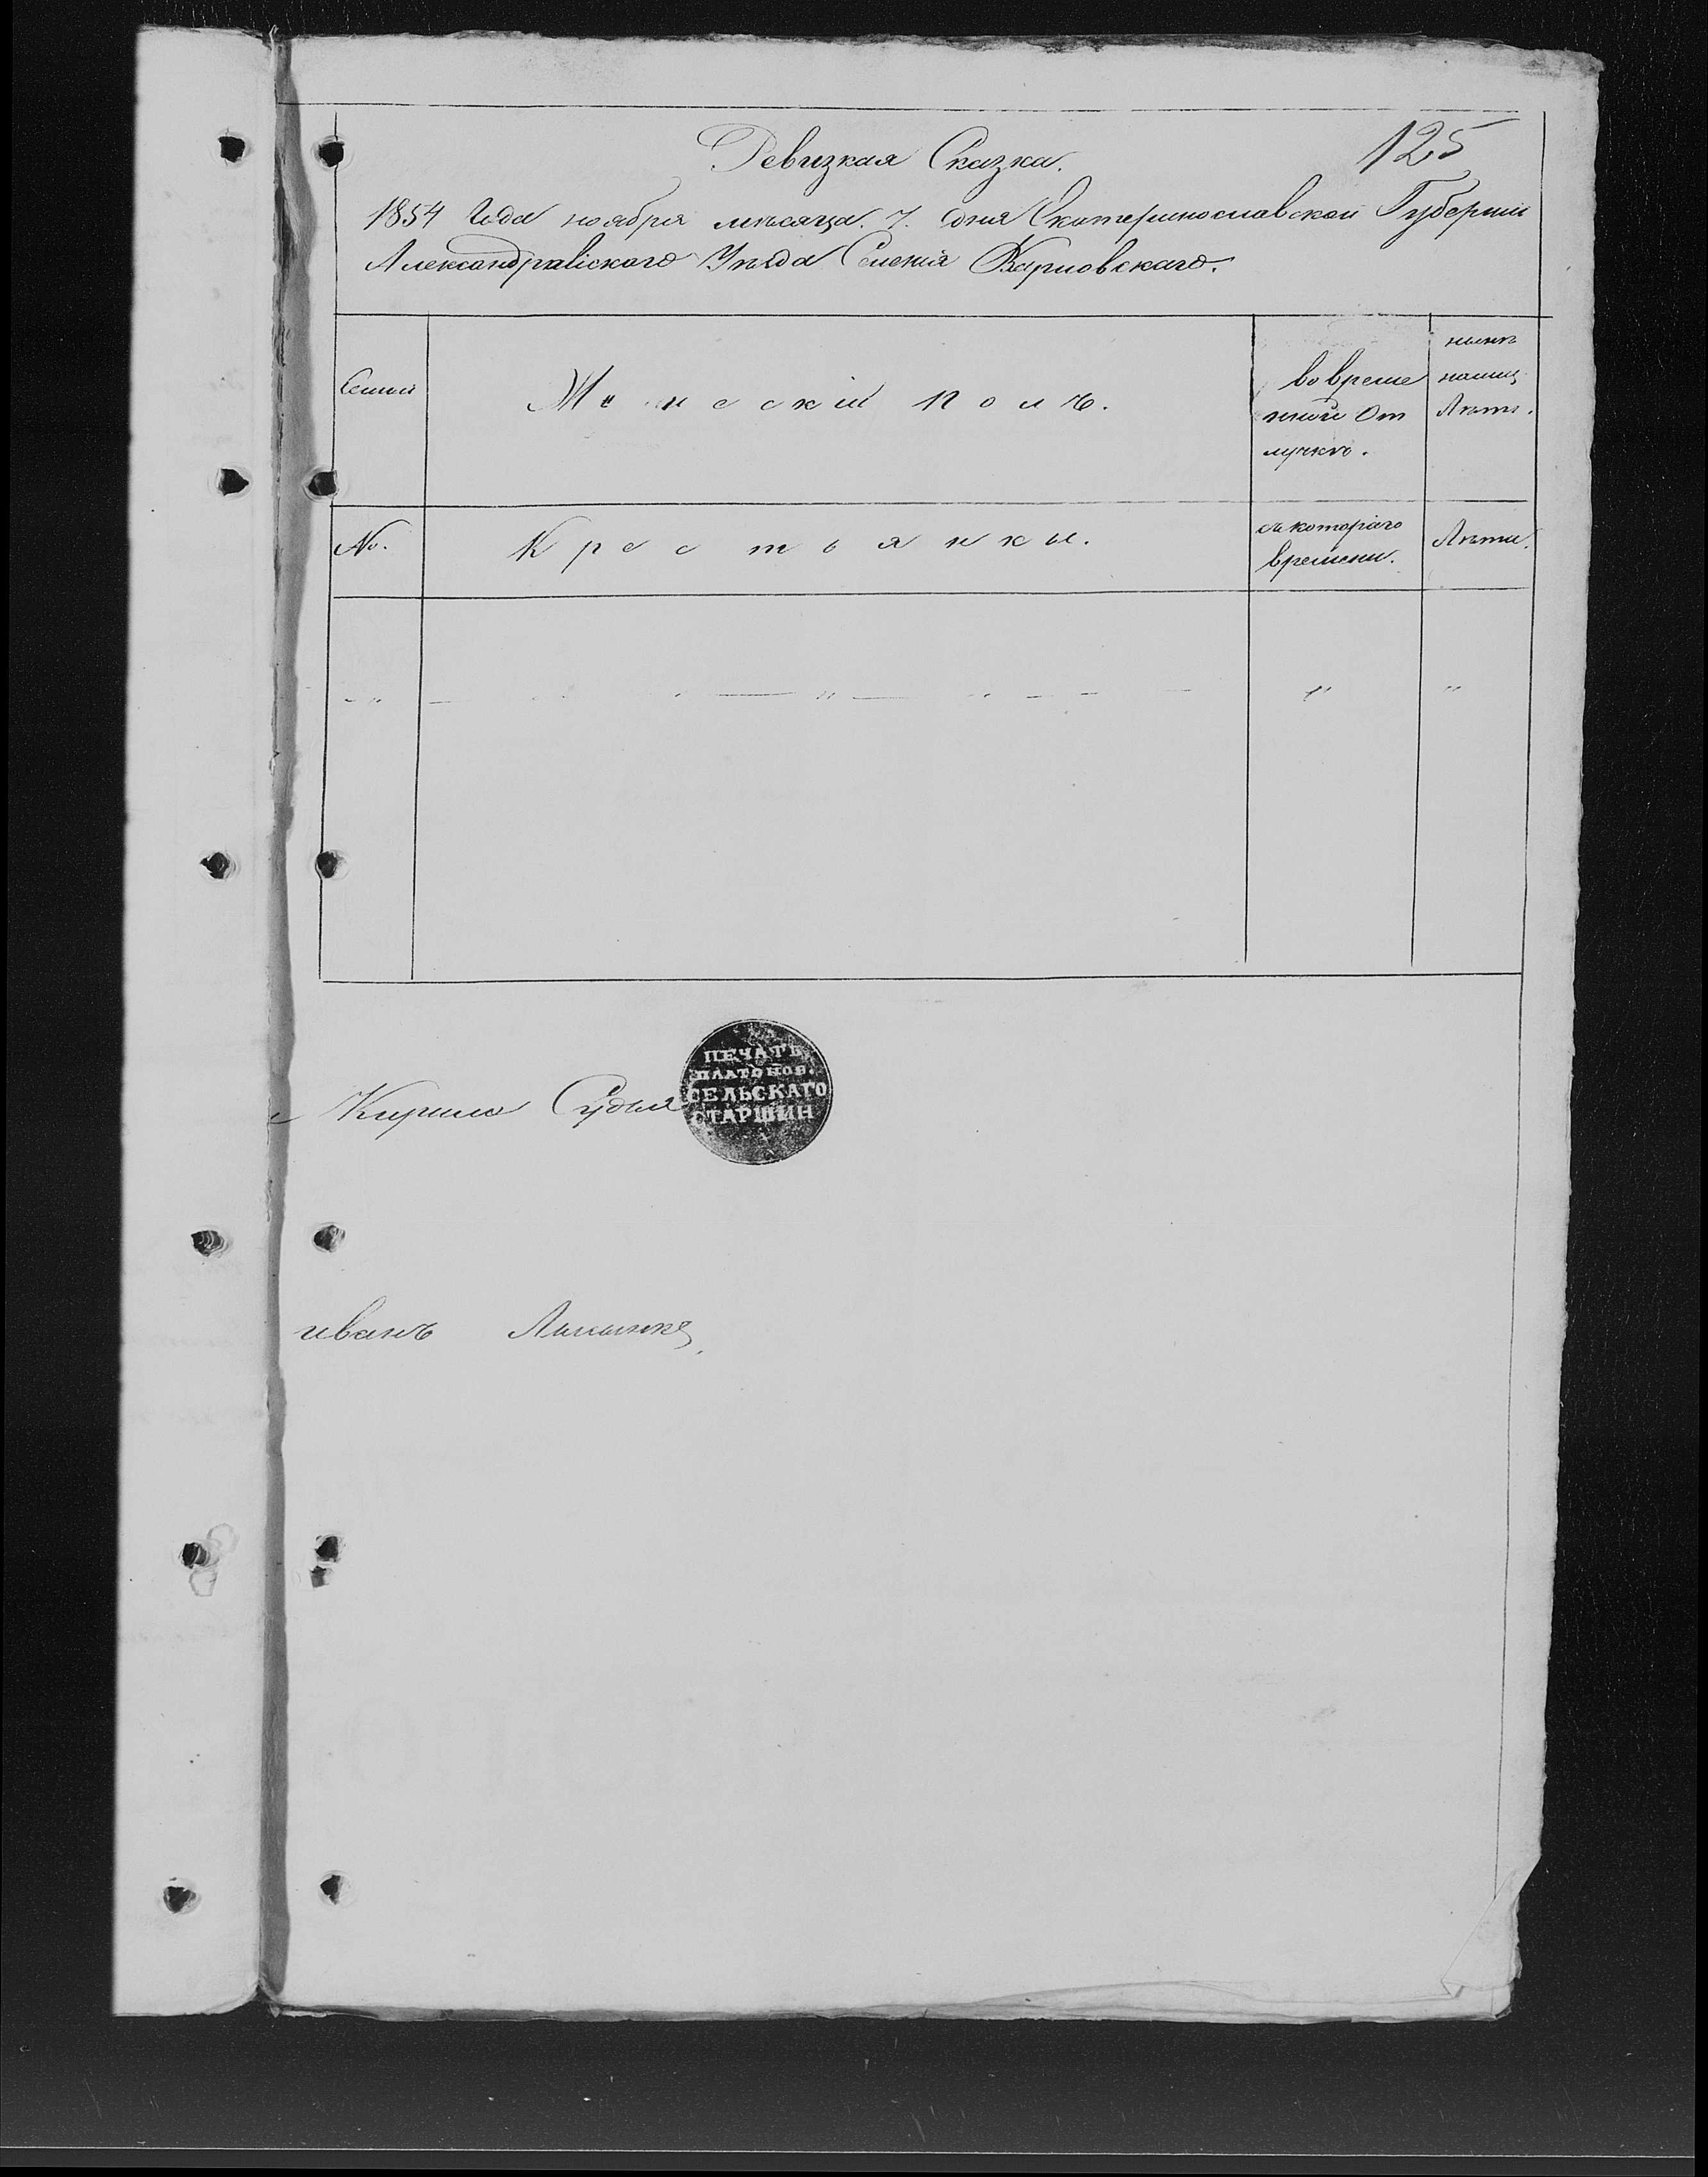 Ревизкая Сказка.
125
1854 Года ноября мѣсяца. 7. дня Екатеринославской Губернии
Александравскаго Уѣзда Селенія Карповскаго.
Семьи
Женеский полъ.
во време
нной От
лучкѣ.
нынѣ
налиц
Лѣта.
No.
Крестьянки.
съ котораго
времени.
Лѣта.
Кирило Судья
ПЕЧАТЬ
ПЛАТОНОВ.
СЕЛЬСКАГО
СТАРШИН
иванъ